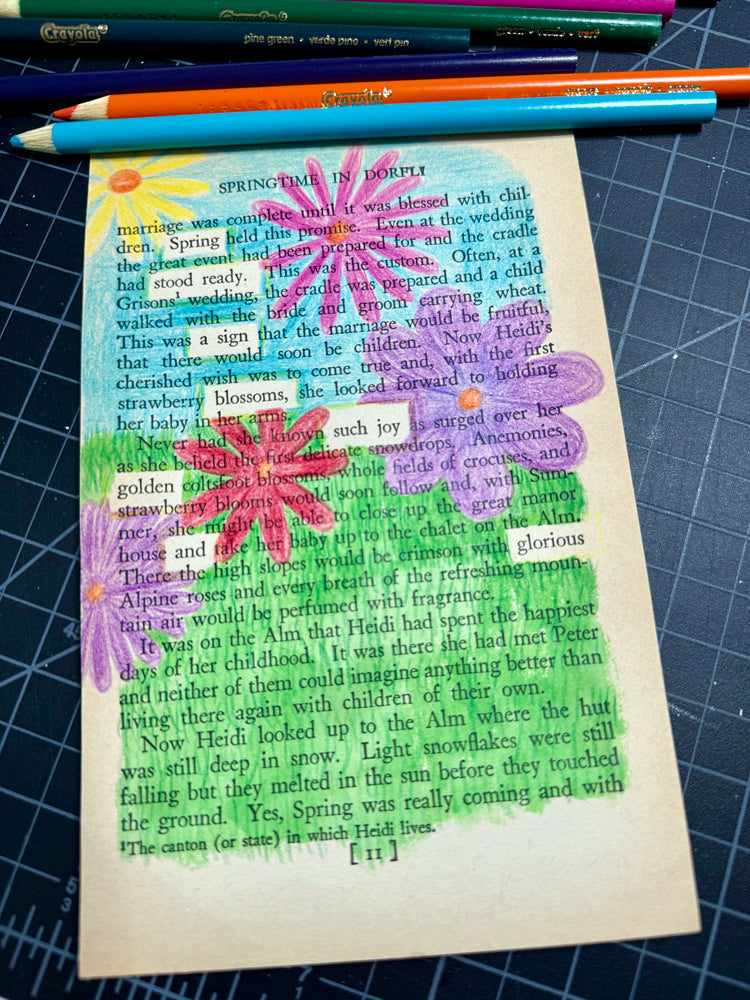 Crayola
pine green • verde pino • vert pin
Crayola
SPRINGTIME IN DORFLI
marriage was complete until it was blessed with chil-
dren. Spring held this promise. Even at the wedding
the great event had been prepared for and the cradle
had stood ready. This was the custom. Often, at a
Grisons¹ wedding, the cradle was prepared and a child
walked with the bride and groom carrying wheat.
This was a sign that the marriage would be fruitful,
that there would soon be children. Now Heidi's
cherished wish was to come true and, with the first
strawberry blossoms, she looked forward to holding
her baby in her arms.
Never had she known such joy as surged over her
as she beheld the first delicate snowdrops. Anemonies,
golden coltsfoot blossoms, whole fields of crocuses, and
strawberry blooms would soon follow and, with Sum-
mer, she might be able to close up the great manor
house and take her baby up to the chalet on the Alm.
There the high slopes would be crimson with glorious
Alpine roses and every breath of the refreshing moun-
tain air would be perfumed with fragrance.
It was on the Alm that Heidi had spent the happiest
days of her childhood. It was there she had met Peter
and neither of them could imagine anything better than
living there again with children of their own.
Now Heidi looked up to the Alm where the hut
was still deep in snow. Light snowflakes were still
falling but they melted in the sun before they touched
the ground. Yes, Spring was really coming and with
¹The canton (or state) in which Heidi lives.
[ 11 ]